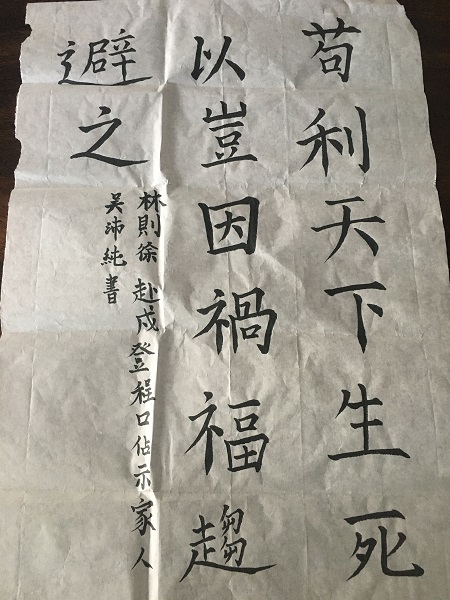 苟利天下生死
以豈因禍福趨
避之
林則徐 赴戍登程口佔示家人
吳沛純書